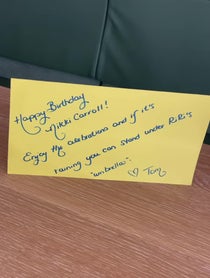 Happy Birthday
Nikki Carroll!
Enjoy the celebrations and if it's
raining you can stand under RiRi's
"umbrella".
♡ Tom